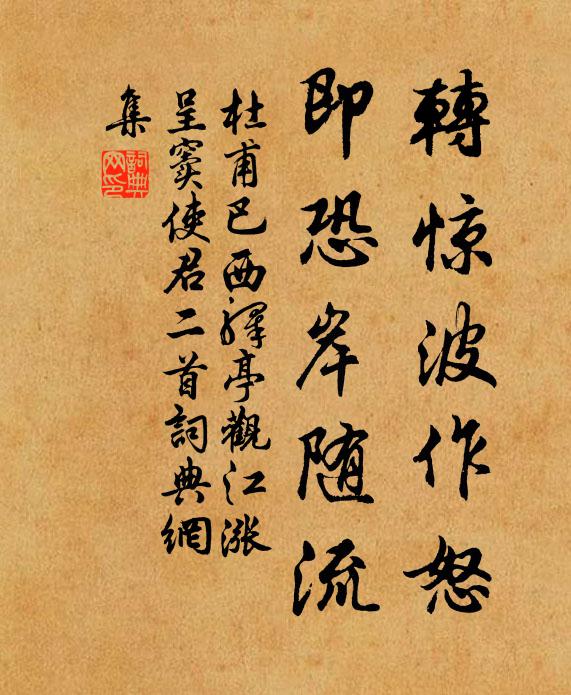 轉惊波作怒
即恐岸随流
杜甫巴西驛亭觀江漲
呈窦使君二首詞典網
集
詞典
网印